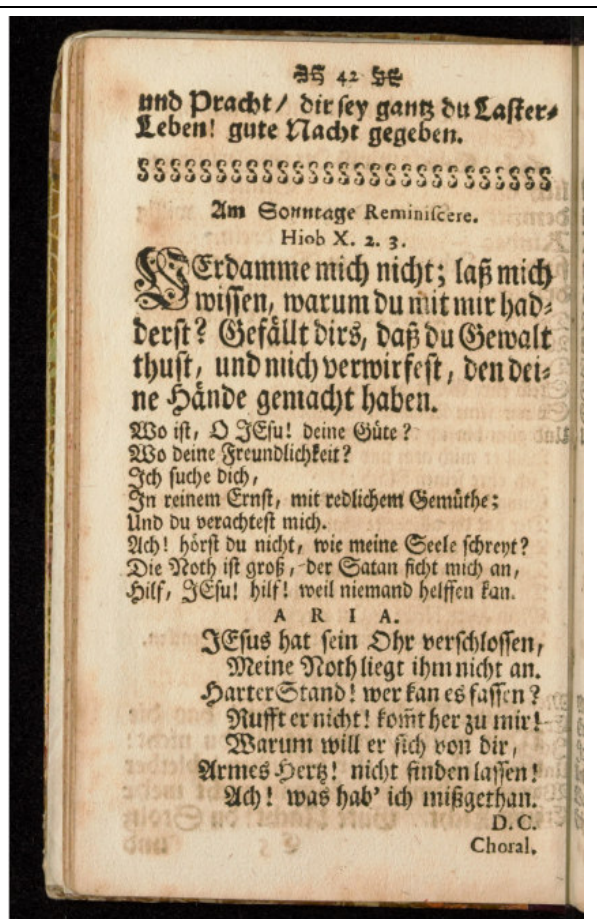 42
und Pracht/ dir sey gantz du Laster-
Leben! gute Nacht gegeben.
Am Sonntage Reminiscere.
Hiob X. 2. 3.
VErdamme mich nicht; laß mich
wissen, warum du mit mir had-
derst? Gefällt dirs, daß du Gewalt
thust, und mich verwirfest, den dei-
ne Hände gemacht haben.
Wo ist, O JEsu! deine Güte?
Wo deine Freundlichkeit?
Ich suche dich,
In reinem Ernst, mit redlichem Gemüthe;
Und du verachtest mich.
Ach! hörst du nicht, wie meine Seele schreyt?
Die Noth ist groß, der Satan ficht mich an,
Hilf, JEsu! hilf! weil niemand helffen kan.
ARIA.
JEsus hat sein Ohr verschlossen,
Meine Noth liegt ihm nicht an.
Harter Stand! wer kan es fassen?
Rufft er nicht! kom̃t her zu mir!
Warum will er sich von dir,
Armes Hertz! nicht finden lassen!
Ach! was hab' ich mißgethan.
D.C.
Choral.